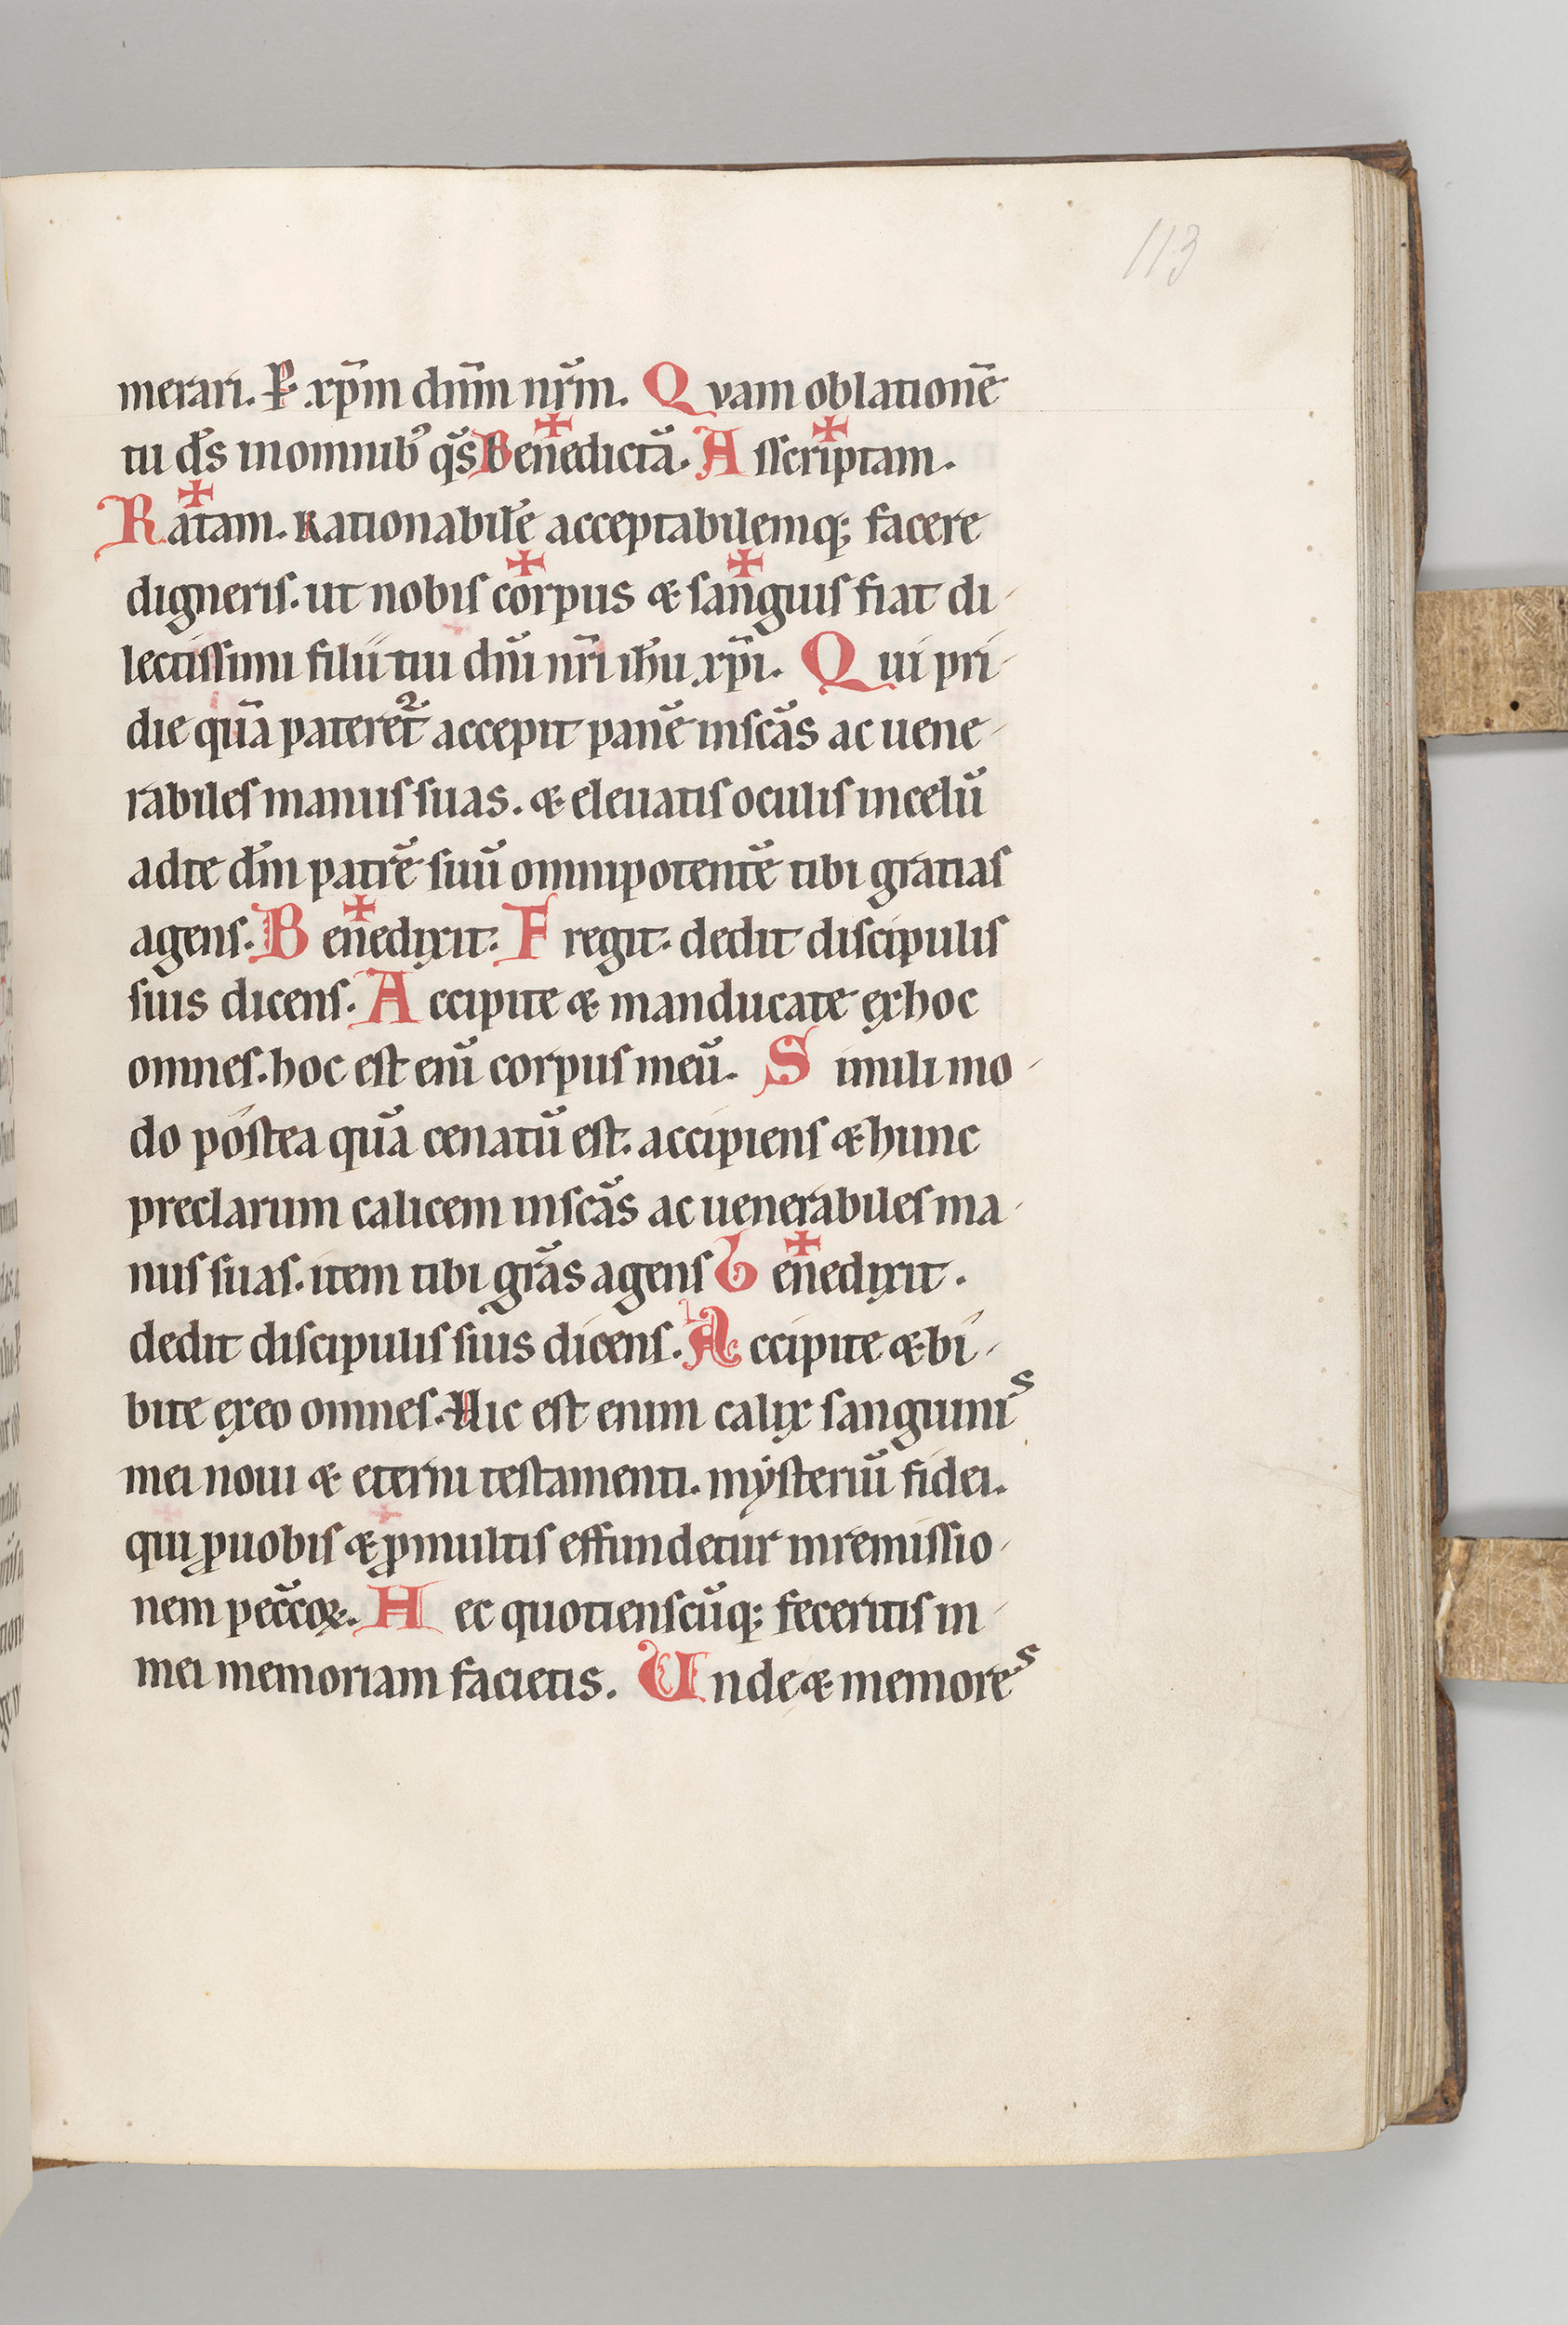 113
merari. P xp̄m dn̄m nr̄m. Qvam oblationē
tu ds̄ in omnib' qs̄ Benedictā. Asscriptam.
Ratam. Rationabilē acceptabilemq; facere
digneris. ut nobis corpus & sanguis fiat di-
lectissimi filii tui dn̄i nr̄i ih̄u xp̄i. Qui pri-
die quā pateret̄ accepit panē in scās ac uene-
rabiles manus suas. & eleuatis oculis in celū
ad te dm̄ patrē suū omnipotentē tibi gratias
agens. Benedixit. Fregit. dedit discipulis
suis dicens. Accipite & manducate ex hoc
omnes. hoc est enī corpus meū. Simili mo-
do postea quā cenatū est. accipiens & hunc
preclarum calicem in scās ac uenerabiles ma-
nus suas. item tibi grās agens benedixit.
dedit discipulis suis dicens. Accipite & bi-
bite ex eo omnes. Hic est enim calix sanguinis
mei noui & eterni testamenti. mysteriū fidei.
qui ꝓ uobis & ꝓ multis effundetur in remissio-
nem pecc̄oꝝ. Hec quotienscūq; feceritis in
mei memoriam facietis. Unde & memores